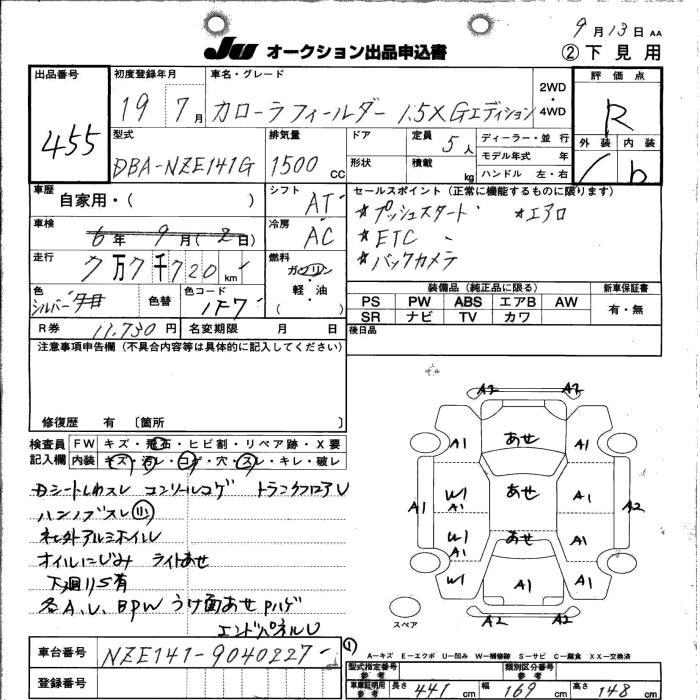 9月13日 AA
JU オークション出品申込書
②下見用
出品番号
455
初度登録年月
19 7月
車名・グレード
カローラフィールダー 1.5X Gエディション
2WD・4WD
評価点
R
外装 内装
b
型式
DBA-NZE141G
排気量
1500 cc
ドア
形状
定員 5人
積載 kg
ディーラー・並行
モデル年式 年
ハンドル 左・右
車歴
自家用・( )
シフト
AT
セールスポイント(正常に機能するものに限ります)
★プッシュスタート ★エアロ
★ETC
★バックカメラ
車検
6年9月(2日)
冷房
AC
走行
7万7千720km
燃料
ガソリン・軽・油
( )
色
シルバー
色替
色コード
1F7
装備品(純正品に限る)
新車保証書
PS PW ABS エアB AW
有・無
SR ナビ TV カワ
R券 11,730円
名変期限 月 日
後日品
注意事項申告欄(不具合内容等は具体的に記入してください)
修復歴 有 〔箇所 〕
検査員記入欄
FW キズ・飛石・ヒビ割・リペア跡・X要
内装 キズ・汚レ・コゲ・穴・スレ・キレ・破レ
Dシートしわスレ コンソールコゲ トランクフロアU
ハンノブスレ(小)
社外アルミホイル
オイルにじみ ライトあせ
下廻りS有
各A.U.BPW うけ面あせ Pハゲ
エンドパネルU
A2 A2
A1 あせ A1
W1 あせ A1
A1
A1 A2
W1 あせ A1
A1
W1 A1 A1
A2 A2
スペア
車台番号
NZE141-9040227
登録番号
A-キズ E-エクボ U-凹み W-補修跡 S-サビ C-腐食 XX-交換済
型式指定番号
参考
類別区分番号
参考
車庫証明用
参考
長さ 441cm 幅 169cm 高さ 148cm